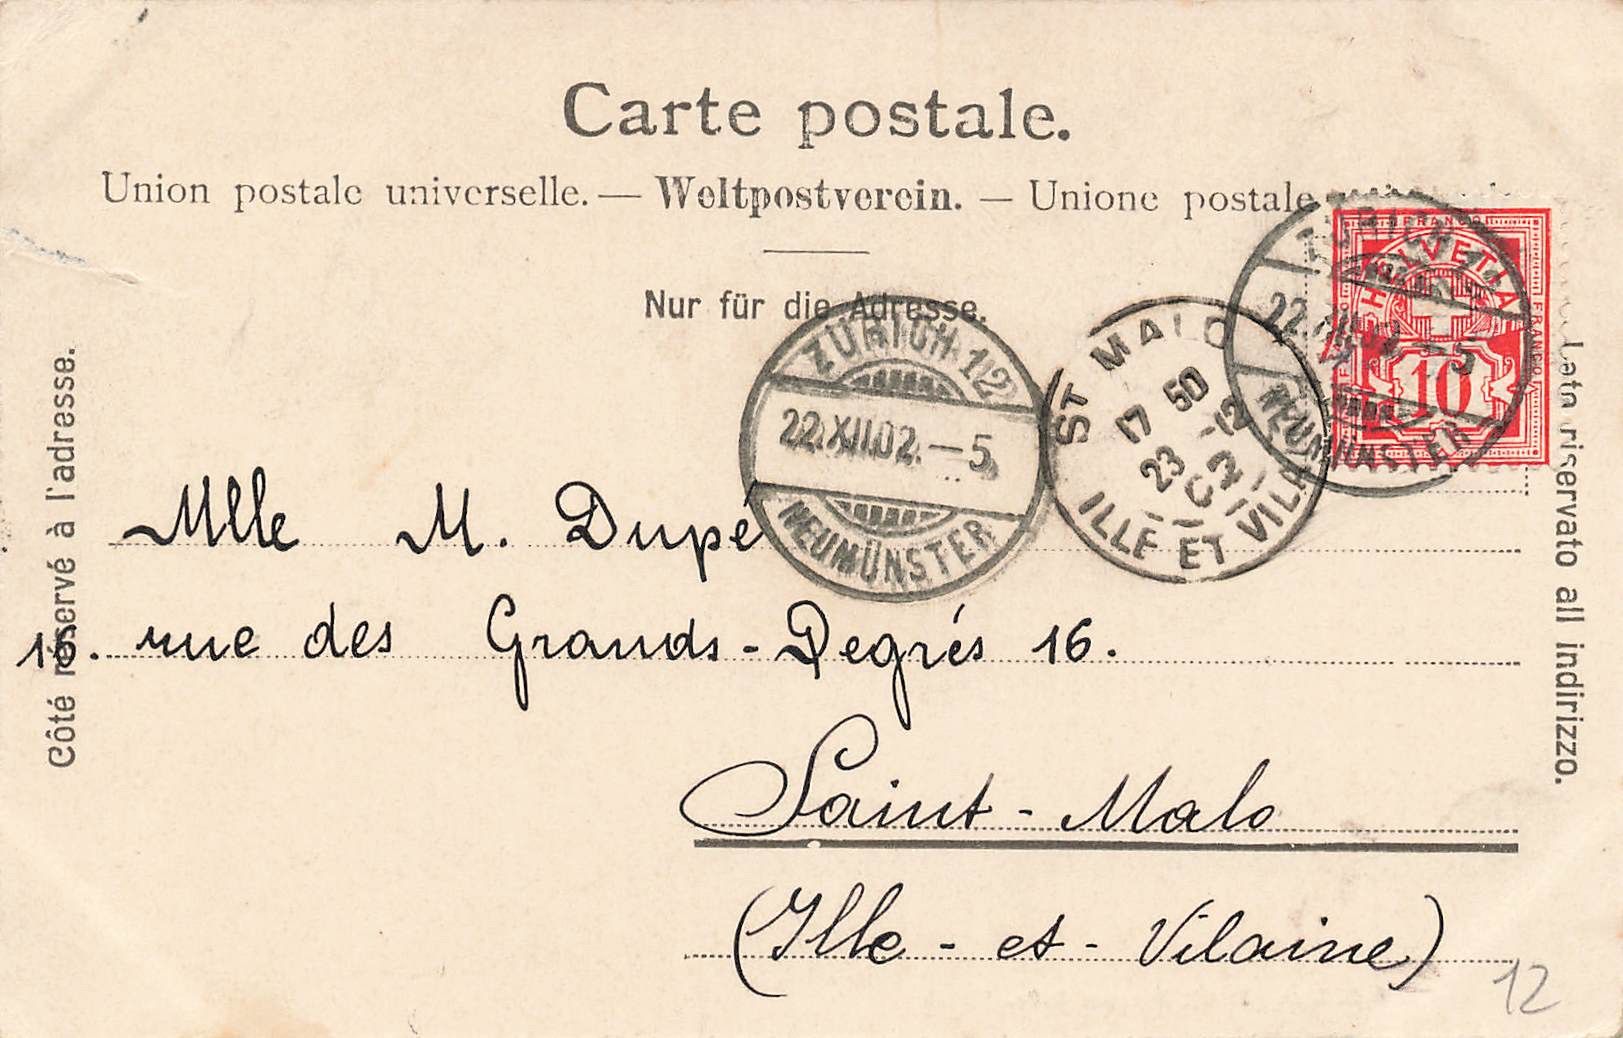 Carte postale.
Union postale universelle. — Weltpostverein. — Unione postale
Nur für die Adresse.
Côté réservé à l'adresse.
Lato riservato all indirizzo.
FRANCO
HELVETIA
10
FRANCO
ZÜRICH
22.XII.02.–5
NEUMÜNSTER
ZÜRICH 12
22.XII.02.–5
NEUMÜNSTER
ST MALO
17 50
23 -12
02
ILLE ET VILAINE
Mlle M. Dupé
16. rue des Grands-Degrés 16.
Saint-Malo
(Ille-et-Vilaine)
12